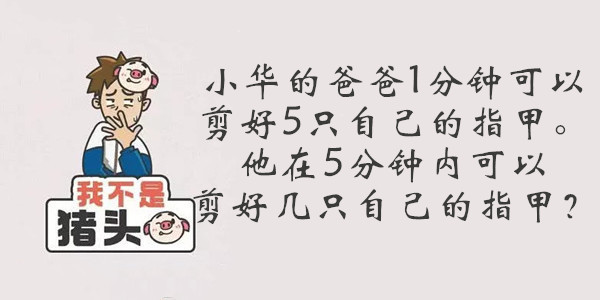 小华的爸爸1分钟可以
剪好5只自己的指甲。
他在5分钟内可以
剪好几只自己的指甲?
我不是
猪头